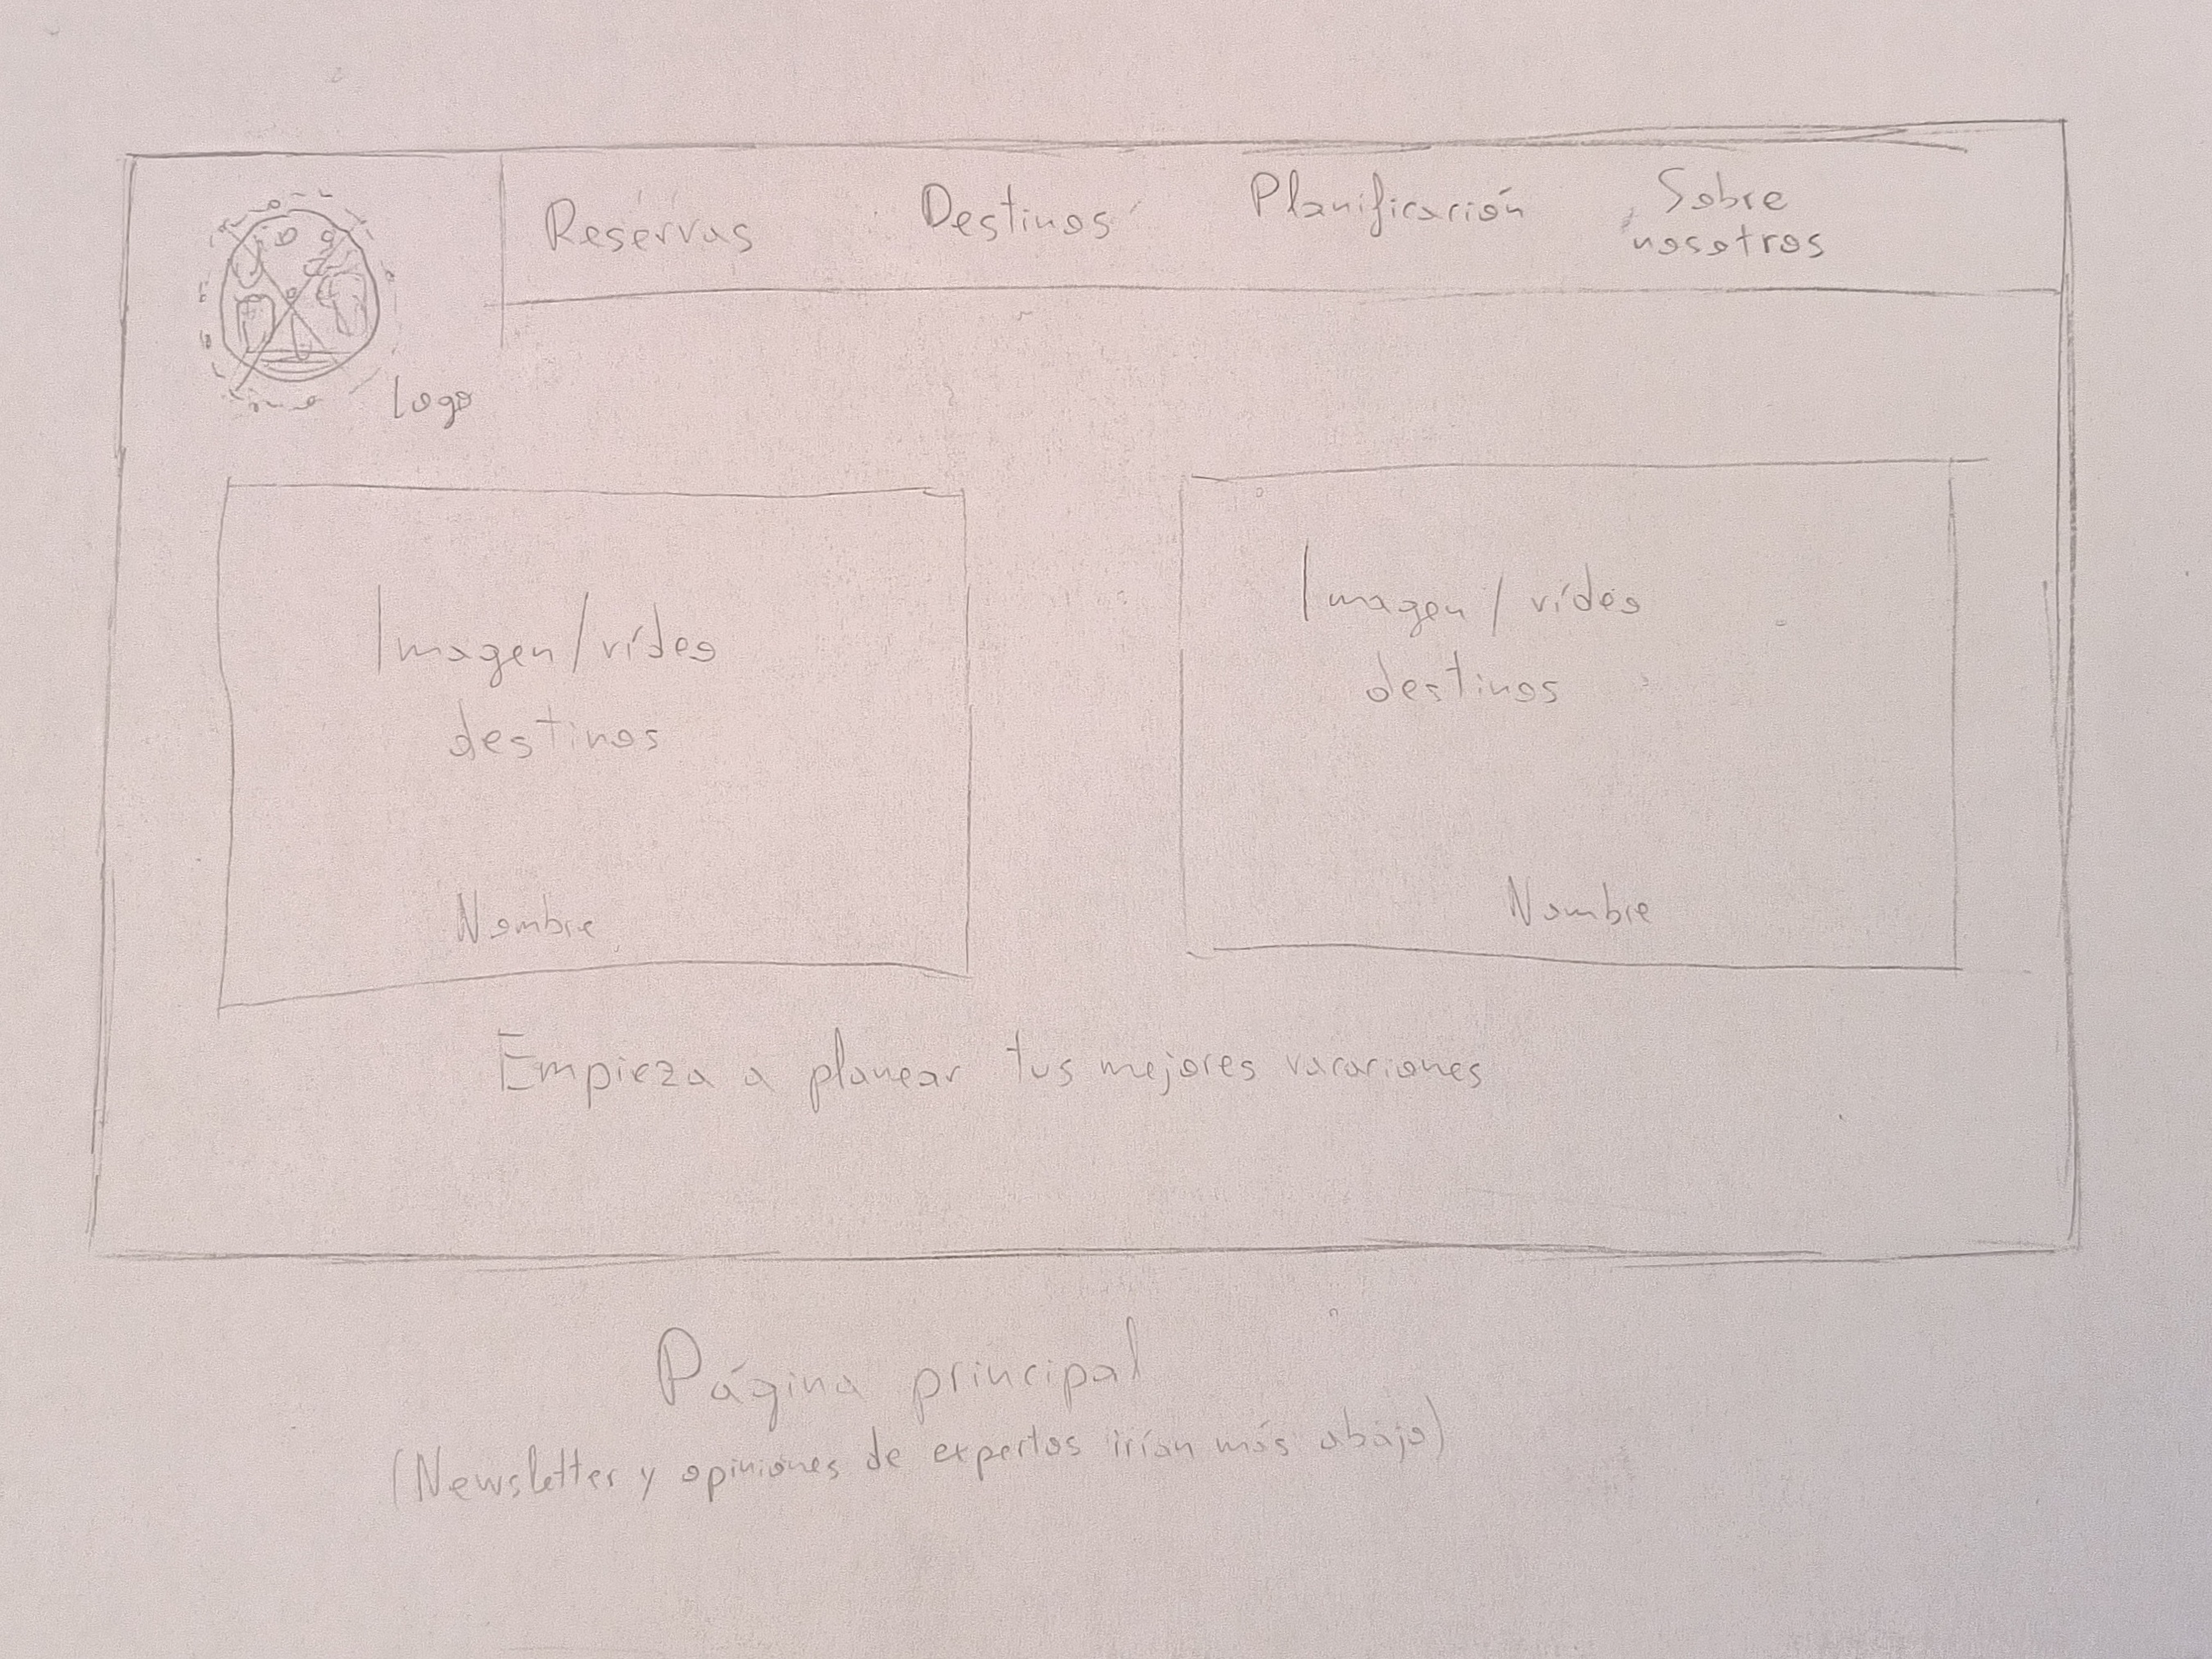 Reservas
Destinos
Planificación
Sobre
nosotros
logo
Imagen/vídeo
destinos
Nombre
Imagen/vídeo
destinos
Nombre
Empieza a planear tus mejores vacaciones
Página principal
(Newsletter y opiniones de expertos irían más abajo)